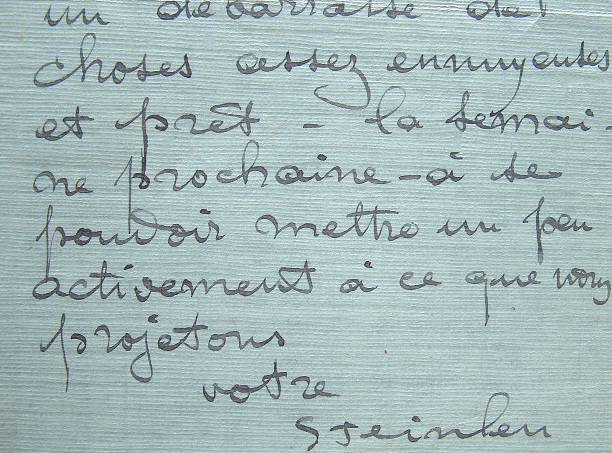 un débarrassé de
choses assez ennuyeuses
et prêt - la semai-
ne prochaine - à se
pouvoir mettre un peu
activement à ce que nous
projetons
votre
Steinlen